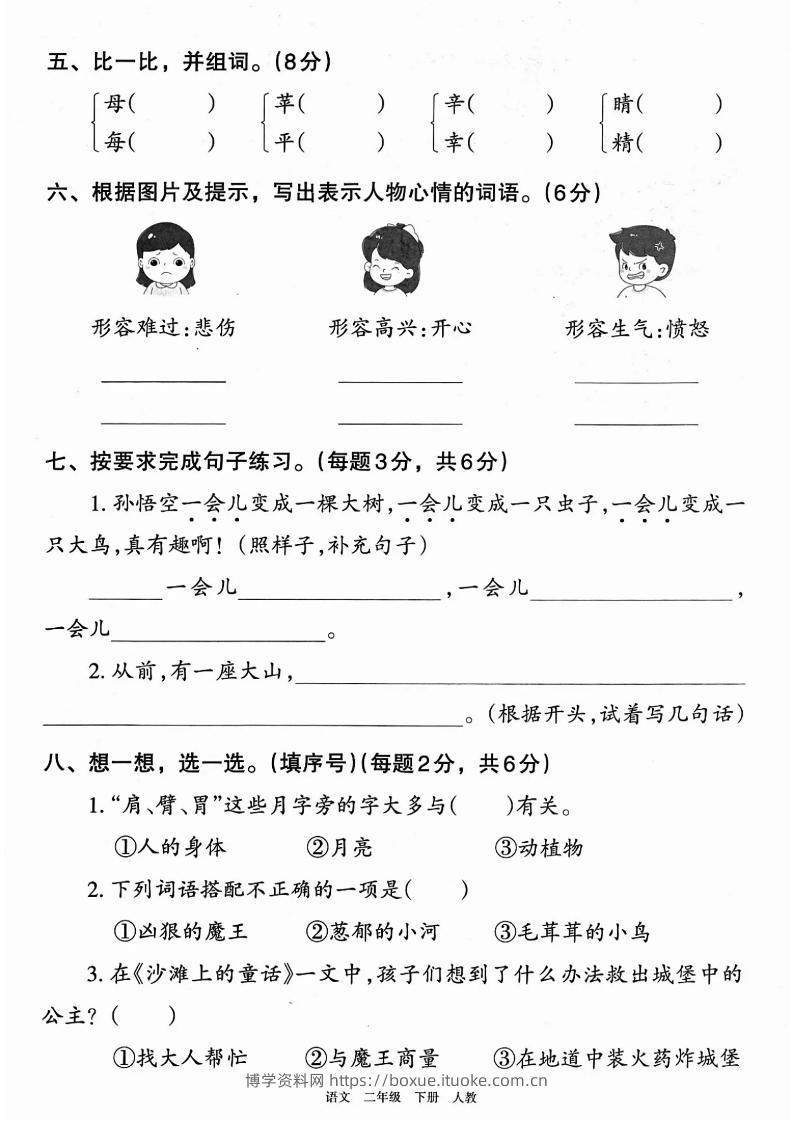 五、比一比，并组词。（8分）
母(　　　) 苹(　　　) 辛(　　　) 晴(　　　)
每(　　　) 平(　　　) 幸(　　　) 精(　　　)
六、根据图片及提示，写出表示人物心情的词语。（6分）
形容难过:悲伤 形容高兴:开心 形容生气:愤怒
______ ______ ______
______ ______ ______
七、按要求完成句子练习。（每题3分，共6分）
1. 孙悟空一会儿变成一棵大树,一会儿变成一只虫子,一会儿变成一
只大鸟,真有趣啊！(照样子,补充句子)
______一会儿________________,一会儿________________,
一会儿________________。
2. 从前,有一座大山,________________
________________。(根据开头,试着写几句话)
八、想一想，选一选。（填序号）（每题2分，共6分）
1. “肩、臂、胃”这些月字旁的字大多与(　　)有关。
①人的身体 ②月亮 ③动植物
2. 下列词语搭配不正确的一项是(　　)
①凶狠的魔王 ②葱郁的小河 ③毛茸茸的小鸟
3. 在《沙滩上的童话》一文中,孩子们想到了什么办法救出城堡中的
公主？(　　)
①找大人帮忙 ②与魔王商量 ③在地道中装火药炸城堡
博学资料网 https://boxue.ituoke.com.cn
语文 二年级 下册 人教